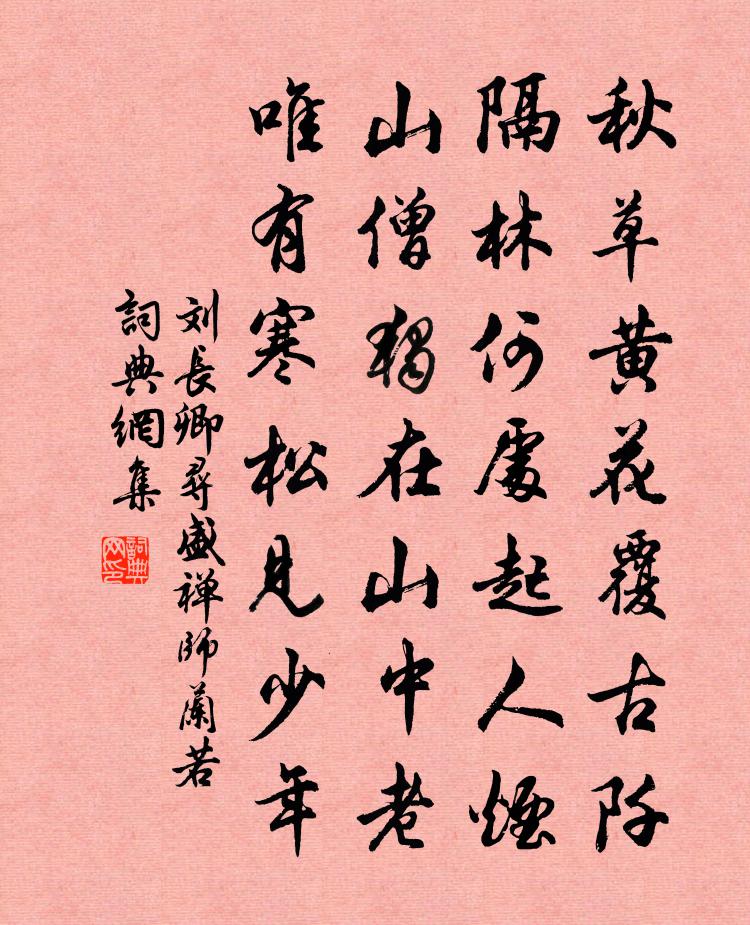 秋草黄花覆古阡
隔林何處起人煙
山僧獨在山中老
唯有寒松見少年
刘長卿尋盛禅師蘭若
詞典網集
詞典網印